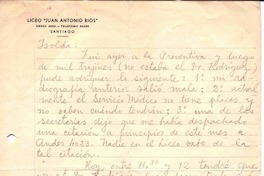 LICEO "JUAN ANTONIO RIOS"
SANTIAGO
Isolda:
Fui ayer a la Preventiva y luego
de mil trajines (no estaba el Dr. Rodríguez)
pude averiguar lo siguiente: 1º mi ra-
diografía anterior salió mala; 2º actual
mente el Servicio Médico no tiene placas y
no saben cuándo tendrán; 3º una de las
secretarias me dijo que me habían despachado
una citación a principios de este mes a
Andes 4033. Nadie en el liceo sabe de la
tal citación.
Hoy, entre 11,30 y 12 tendré que